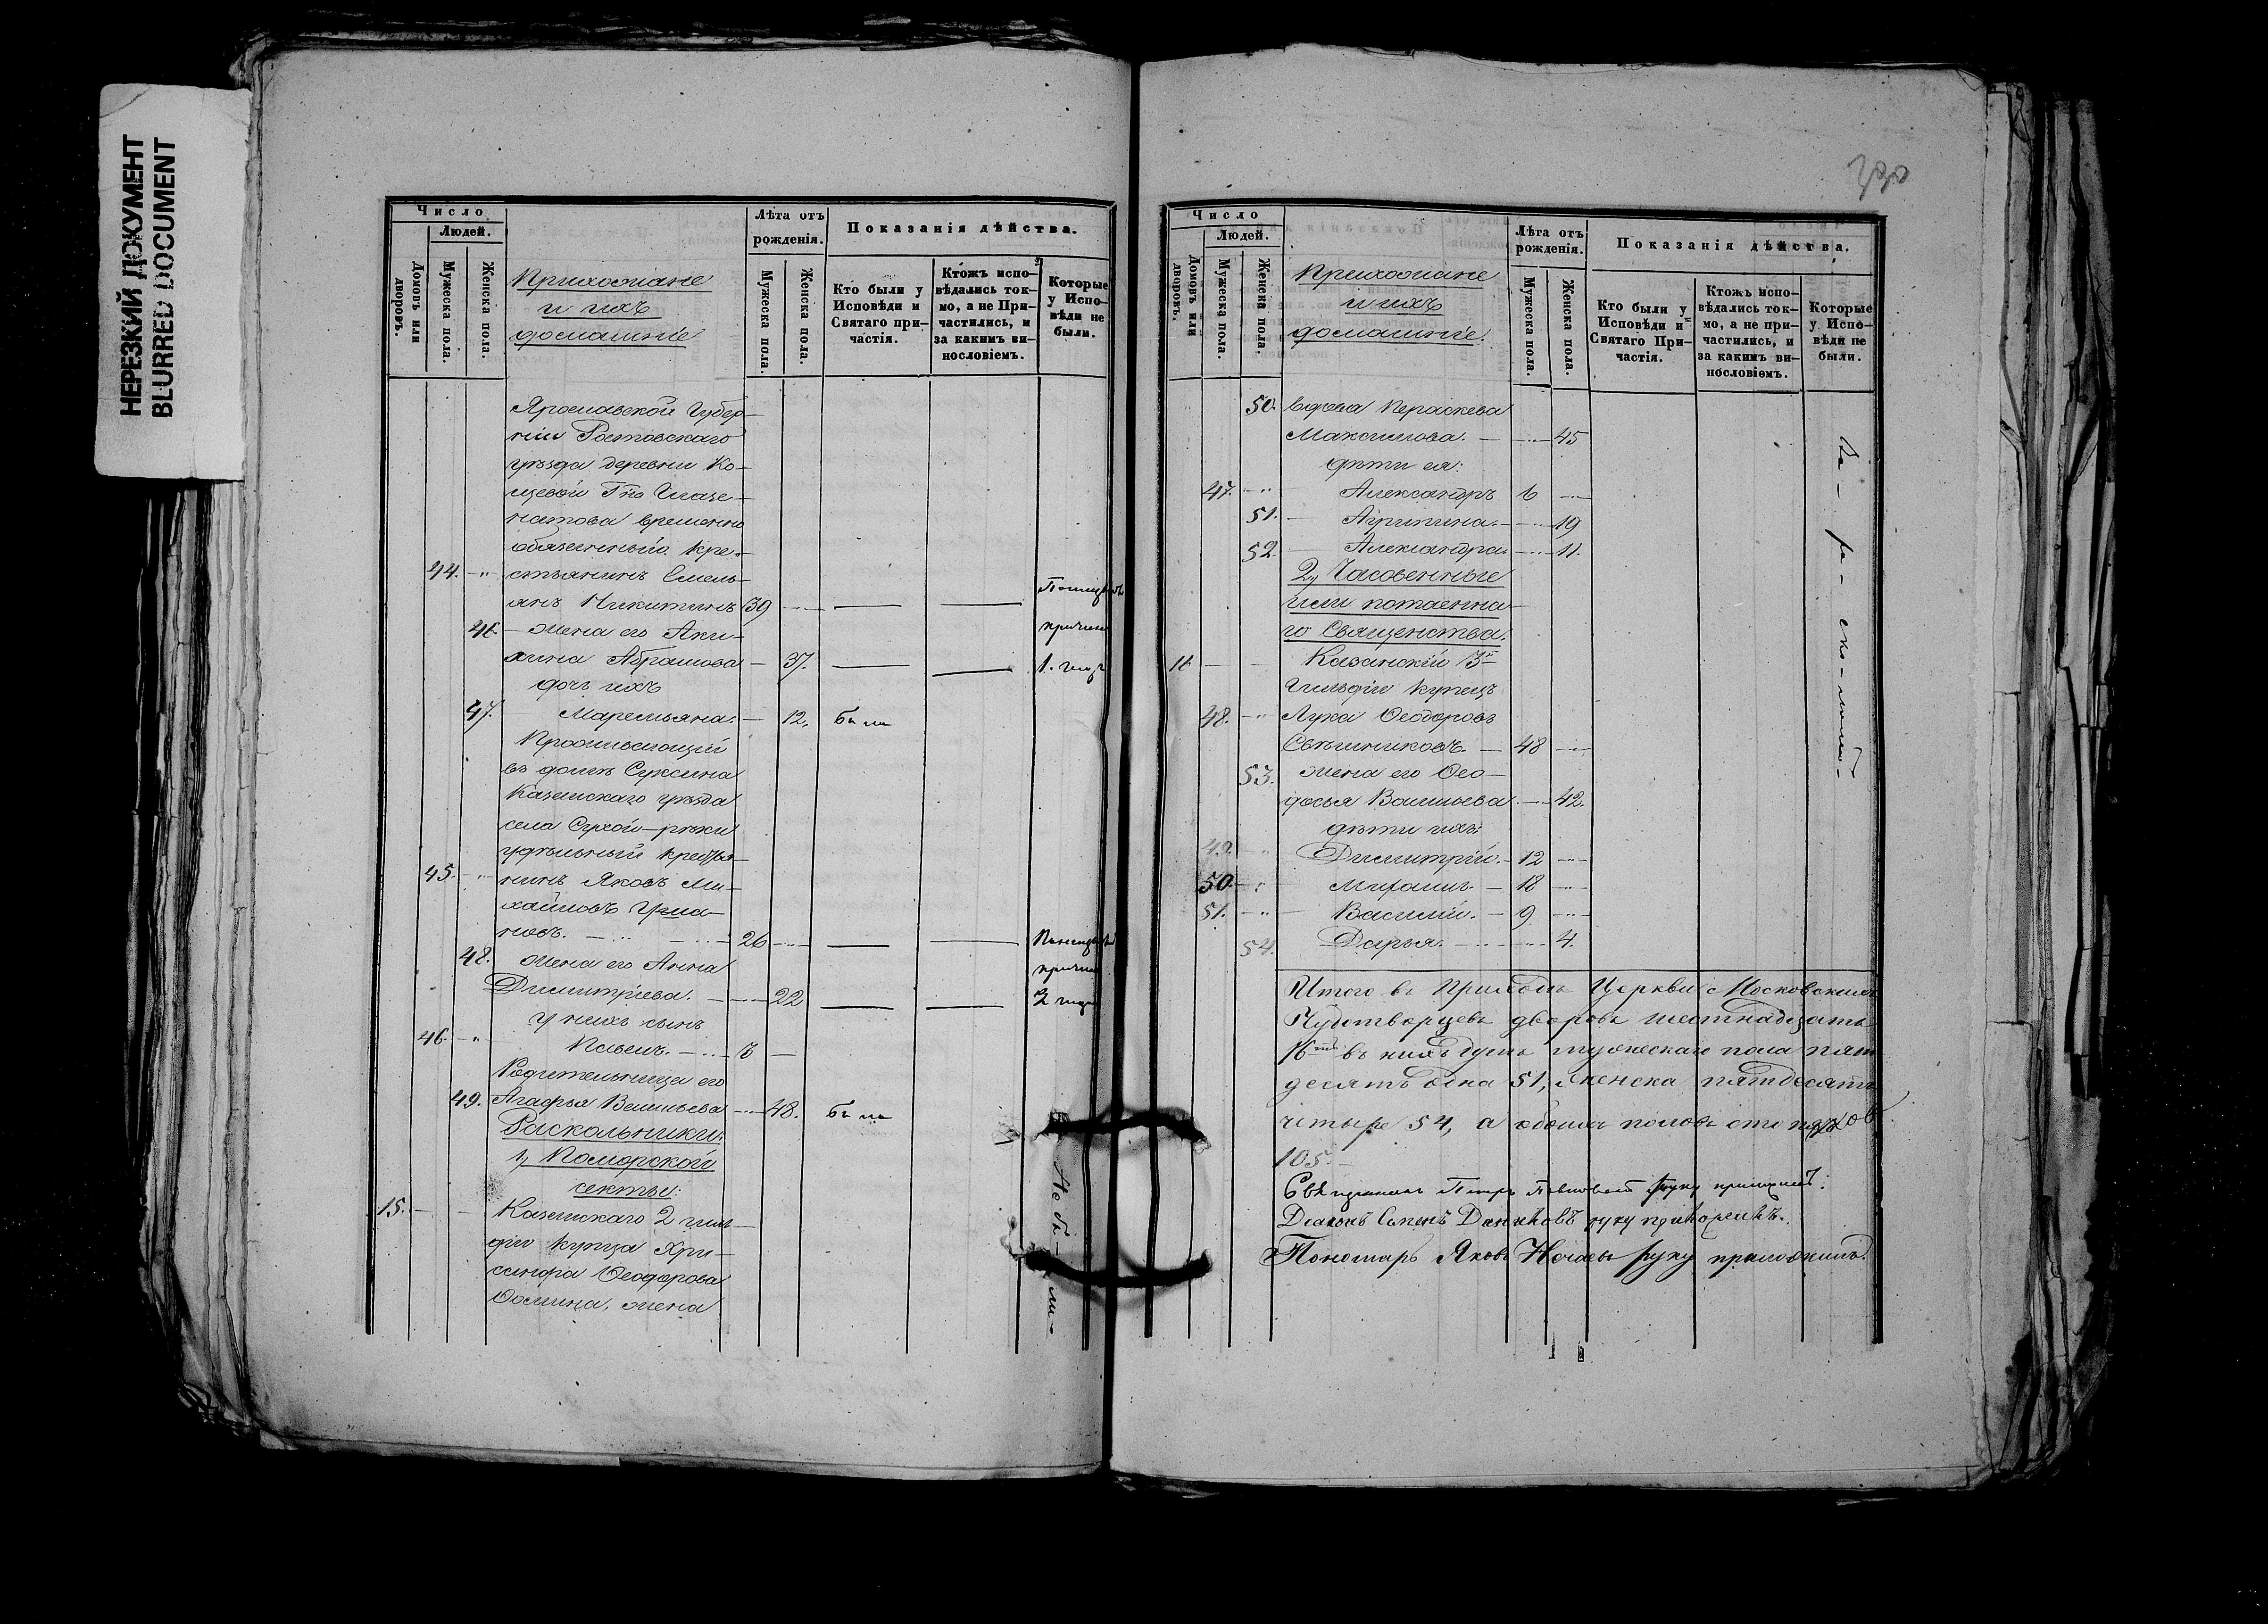 НЕРЕЗКИЙ ДОКУМЕНТ
BLURRED DOCUMENT
Число
Людей.
Домовъ или дворовъ.
Мужеска пола.
Женска пола.
Прихожане
и ихъ
домашніе
Лѣта отъ
рожденія.
Мужеска пола.
Женска пола.
Показанія дѣйства.
Кто были у
Исповѣди и
Святаго при-
частія.
Ктожъ испо-
вѣдались ток-
мо, а не При-
частились, и
за какимъ ви-
нословіемъ.
Которые
у Испо-
вѣди не
были.
Ярославской Губер-
ніи Ростовскаго
уѣзда деревни Ко-
щевой Гна
временно
обязанный кре-
44. стьянинъ Емель-
янъ Никитинъ 39
46. жена его Аки-
лина Абрамова 37. 1. годъ
дочь ихъ
47. Маремьяна. 12. была
Проживающій
въ домѣ Суксина
Казанскаго уѣзда
села Сухой-рѣки
удѣльный крестья-
45. нинъ Яковъ Ми-
хайловъ
новъ. 26
48. жена его Анна
Димитріева. 22 2 года
у нихъ сынъ
46. Павелъ. 3
Родительница его
49. Агафья Васильева 48. была
Раскольники:
1, Поморской
секты:
15. Казанскаго 2 гиль-
діи купца Хри-
санфа Ѳеодорова
Ѳомина, жена
Не бы-ли-
330
Число
Людей.
Домовъ или дворовъ.
Мужеска пола.
Женска пола.
Прихожане
и ихъ
домашніе.
Лѣта отъ
рожденія.
Мужеска пола.
Женска пола.
Показанія дѣйства.
Кто были у
Исповѣди и
Святаго При-
частія.
Ктожъ испо-
вѣдались ток-
мо, а не при-
частились, и
за какимъ ви-
нословіемъ.
Которые
у Испо-
вѣди не
были.
50. вдова Параскева
Максимова. 45
дѣти ея:
47. Александръ 6
51. Агрипина. 19
52. Александра 11.
2, Часовенные
или потаенна-
го Священства.
16 Казанскій 3й
Гильдіи купецъ
48. Лука Ѳеодоровъ
Свѣшниковъ. 48
53. жена его Ѳео-
досья Васильева 42.
дѣти ихъ:
49. Димитрій. 12
50. Михаилъ. 18
51. Василій. 9
54. Дарья. 4.
За ра-ско-ломъ-
Итого въ Приходѣ Церкви Московскихъ
Чудотворцевъ дворовъ шестнадцать
16ть въ нихъ душъ мужеска пола пять
десятъ одна 51, женска пятдесятъ
четыре 54, а обоихъ половъ сто пять
105.
Священникъ Петръ руку приложилъ:
Діаконъ Семенъ руку приложилъ.
Пономарь Яковъ Нечаевъ руку приложилъ.